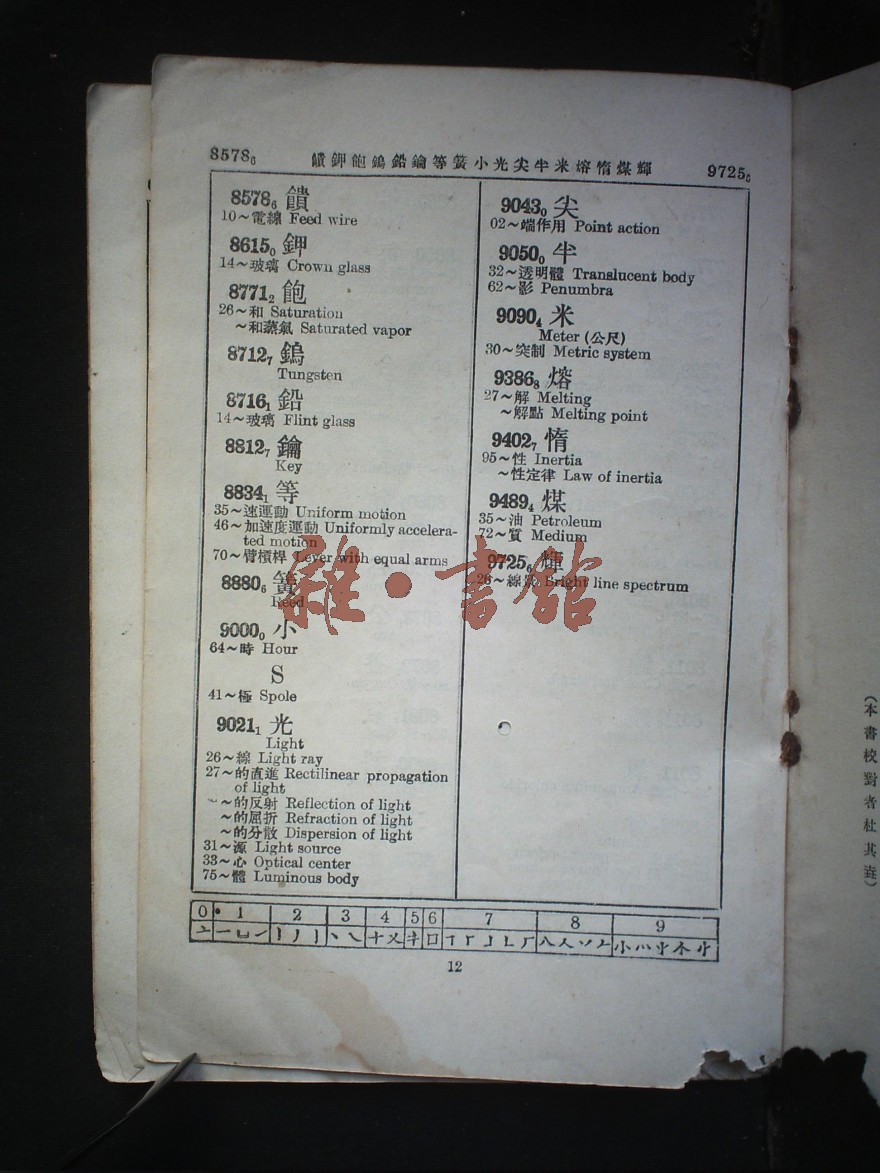 8578₆ 饋鉀飽鎢鉛鑰等簧小光尖半米熔惰煤輝 9725₆
8578₆ 饋
10～電線 Feed wire
8615₀ 鉀
14～玻璃 Crown glass
8771₂ 飽
26～和 Saturation
～和蒸氣 Saturated vapor
8712₇ 鎢
Tungsten
8716₁ 鉛
14～玻璃 Flint glass
8812₇ 鑰
Key
8834₁ 等
35～速運動 Uniform motion
46～加速度運動 Uniformly accelera-
ted motion
70～臂槓桿 Lever with equal arms
8880₆ 簧
Reed
9000₀ 小
64～時 Hour
S
41～極 Spole
9021₁ 光
Light
26～線 Light ray
27～的直進 Rectilinear propagation
of light
～的反射 Reflection of light
～的屈折 Refraction of light
～的分散 Dispersion of light
31～源 Light source
33～心 Optical center
75～體 Luminous body
9043₀ 尖
02～端作用 Point action
9050₀ 半
32～透明體 Translucent body
62～影 Penumbra
9090₄ 米
Meter (公尺)
30～突制 Metric system
9386₈ 熔
27～解 Melting
～解點 Melting point
9402₇ 惰
95～性 Inertia
～性定律 Law of inertia
9489₄ 煤
35～油 Petroleum
72～質 Medium
9725₆ 輝
26～線 Bright line spectrum
雜·書館
0 1 2 3 4 5 6 7 8 9
12
(本書校對者杜其垚)